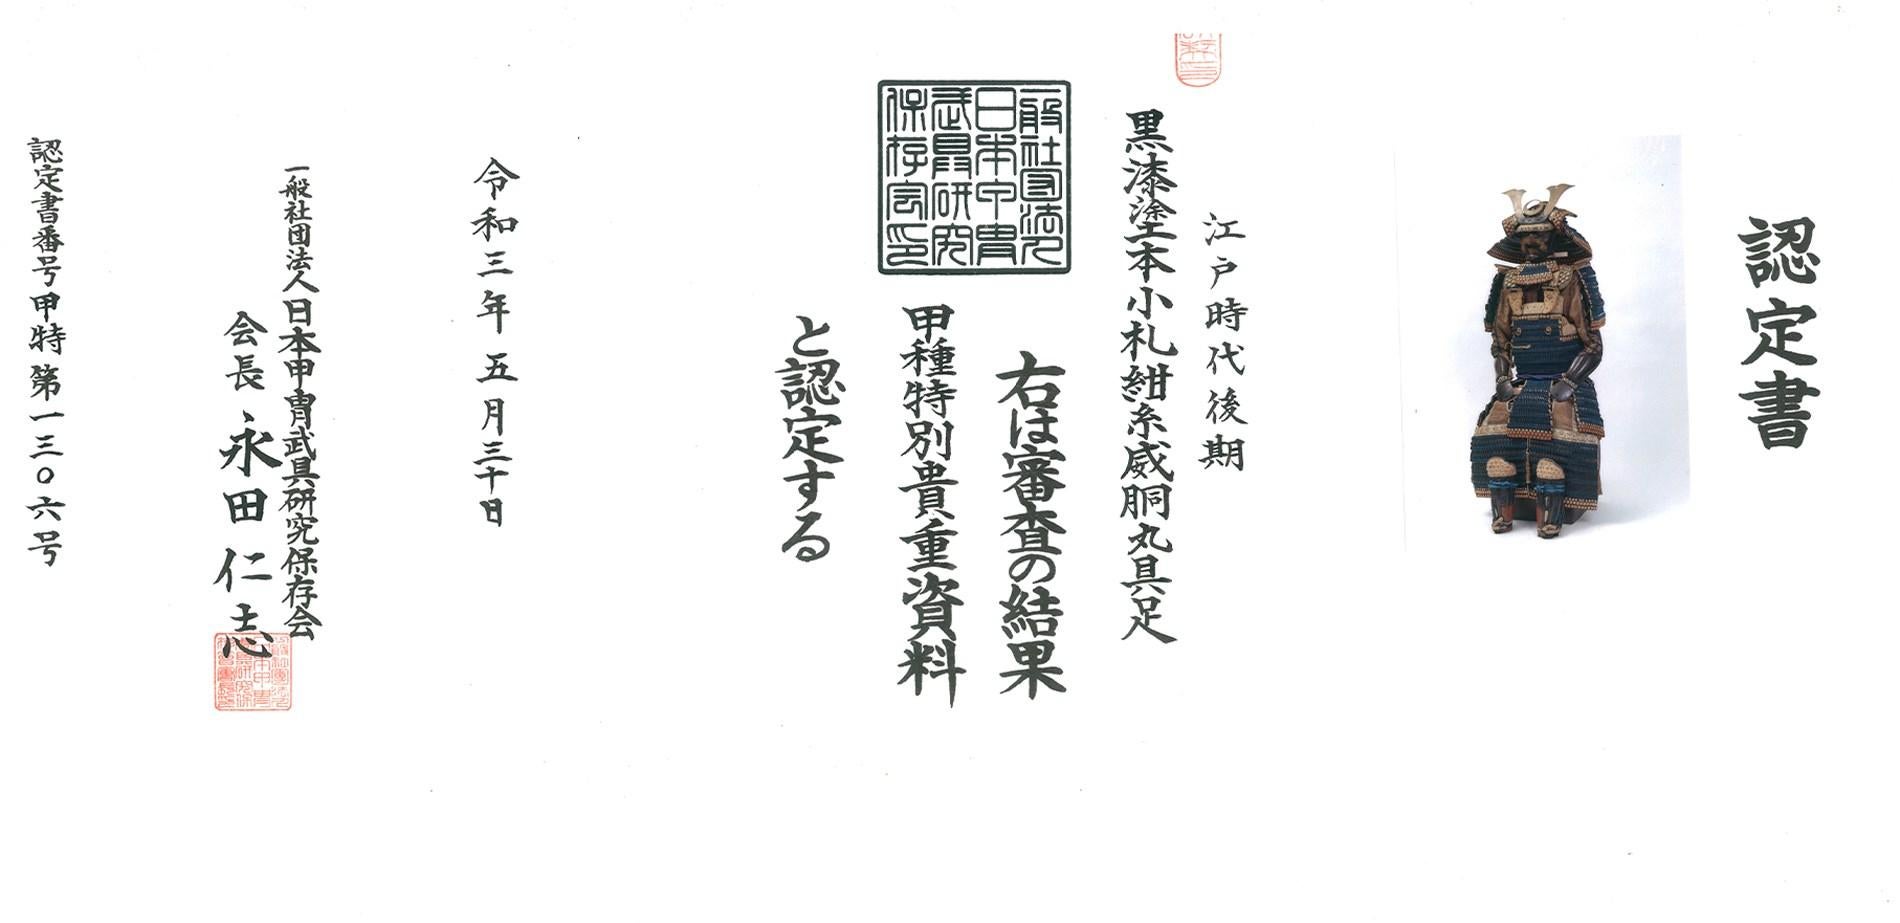 認定書
江戸時代後期
黒漆塗本小札紺糸威胴丸具足
右は審査の結果
甲種特別貴重資料
と認定する
一般社団法人
日本甲冑
武具研究
保存会印
令和三年五月三十日
一般社団法人日本甲冑武具研究保存会
会長 永田仁志
認定書番号甲特第一三〇六号